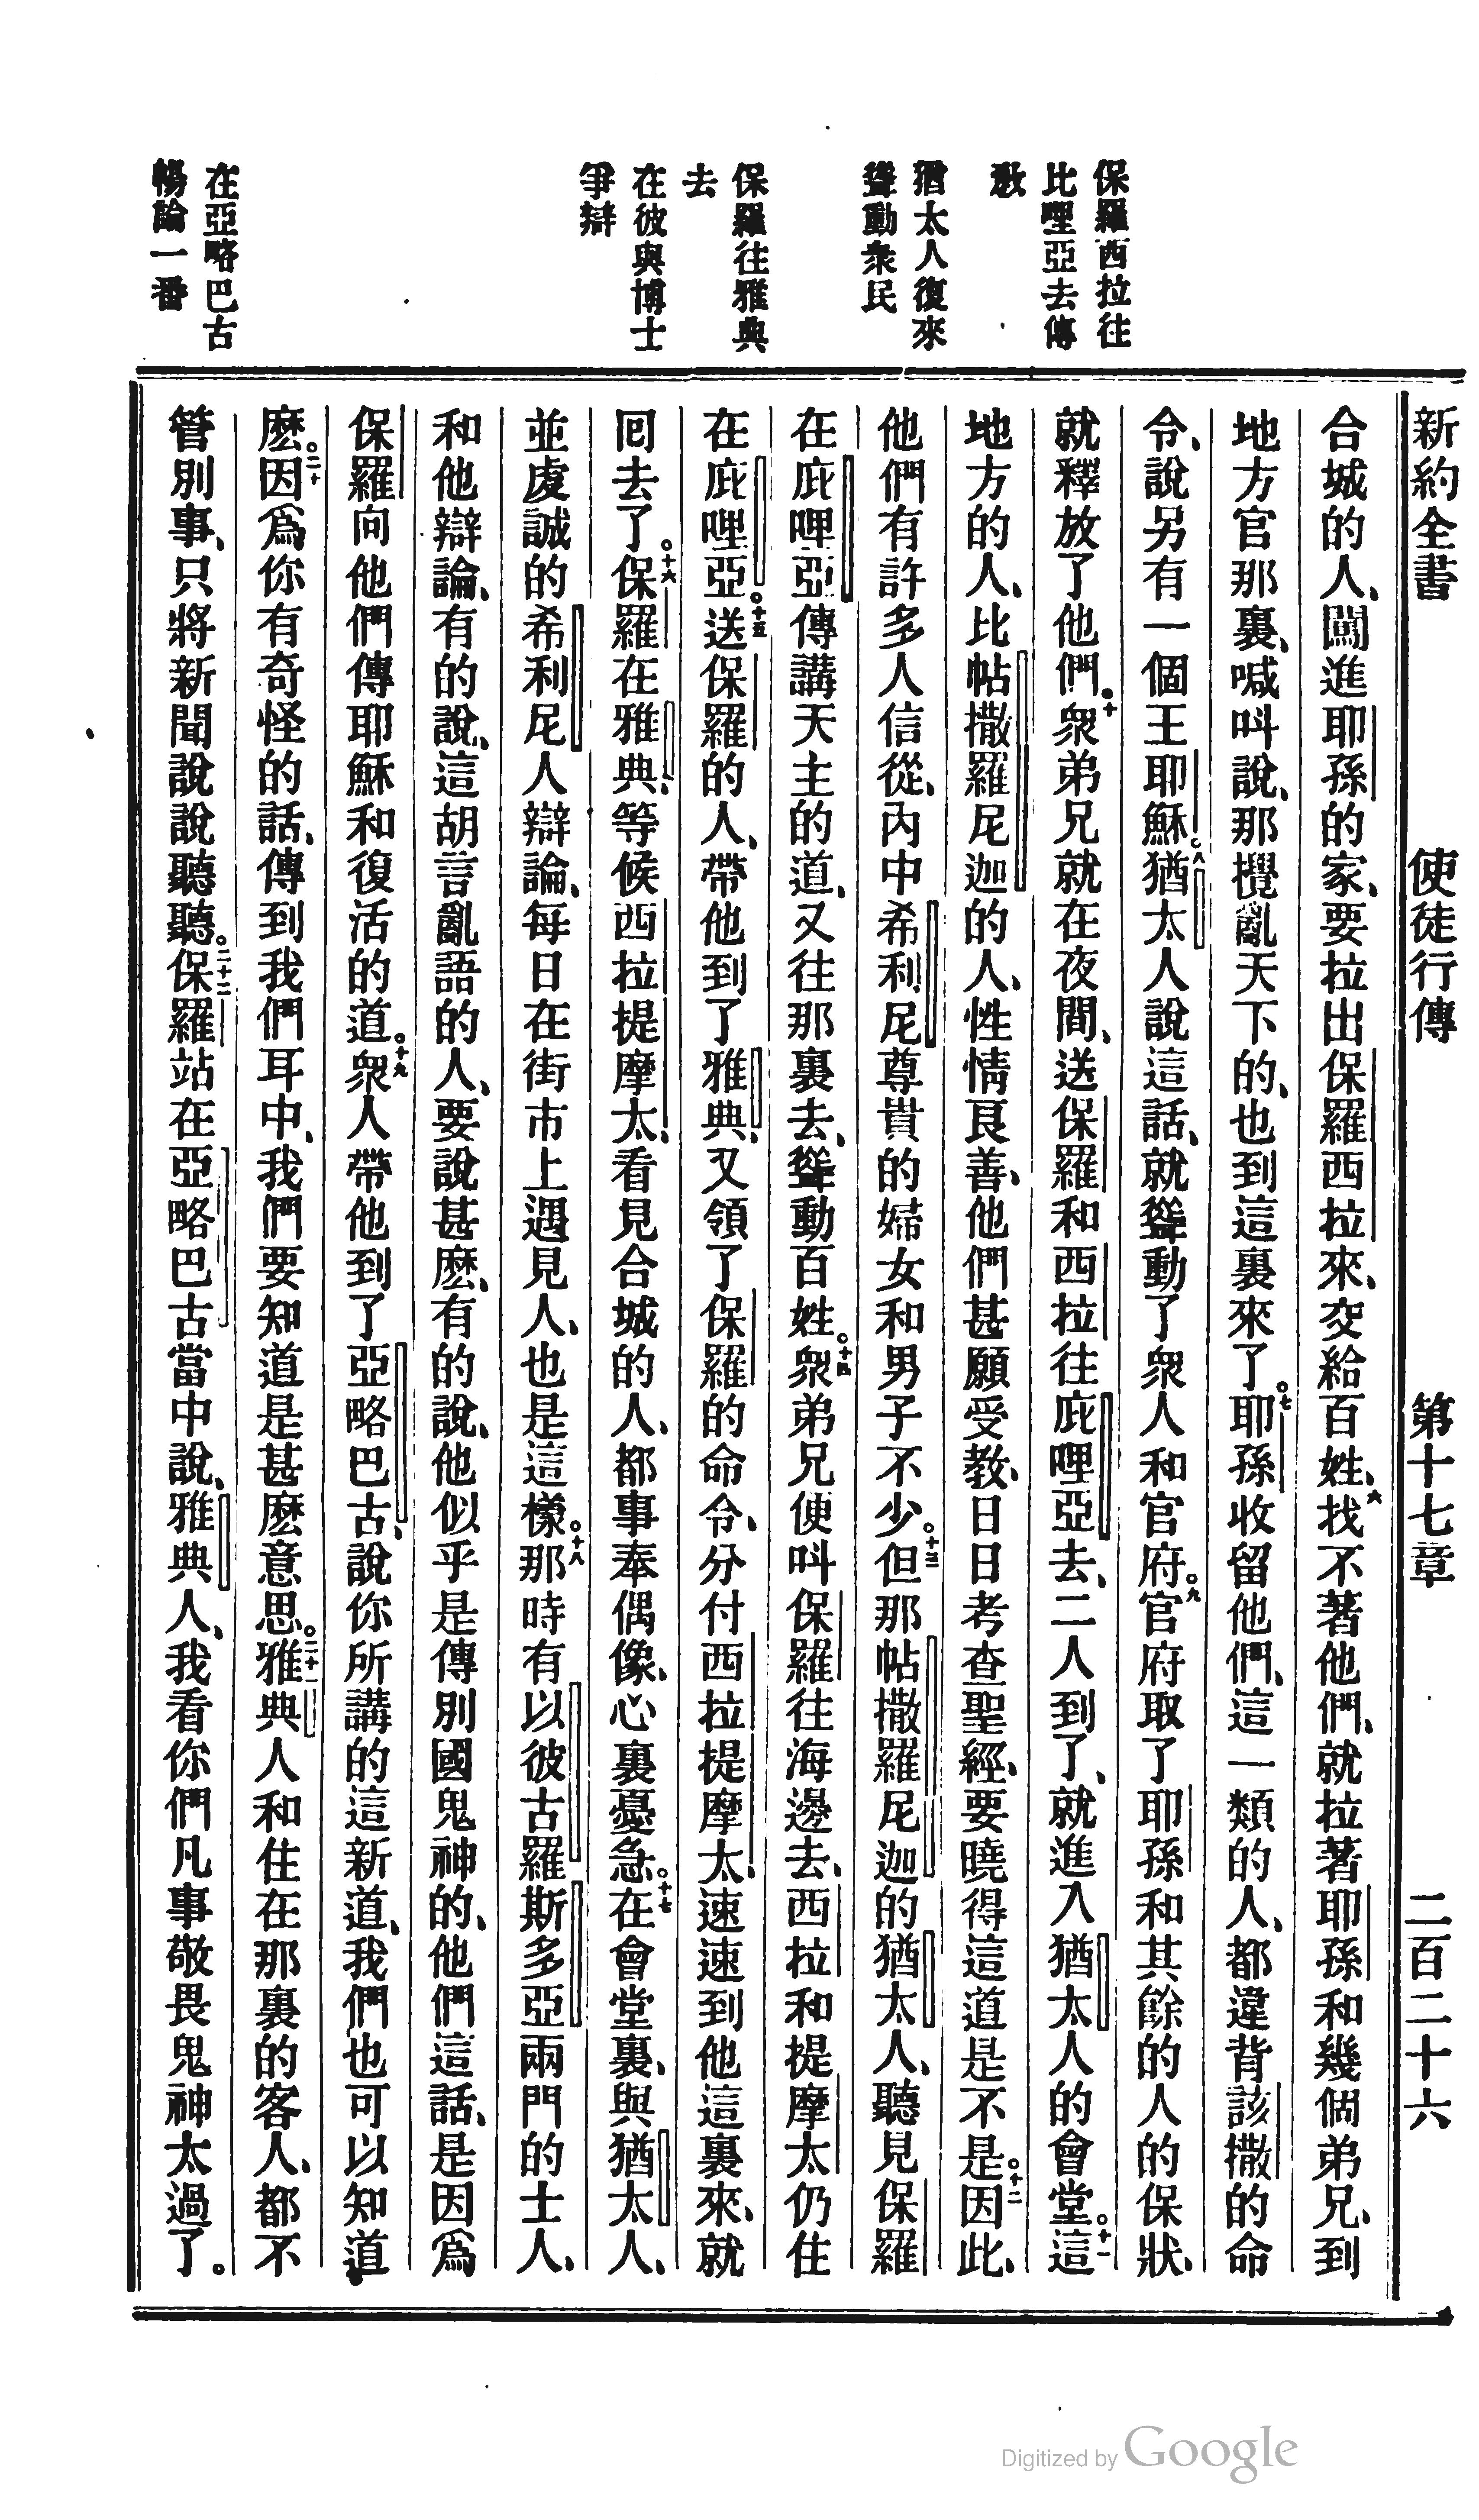 新約全書 使徒行傳 第十七章 二百二十六
保羅西拉往
比哩亞去傳
教
猶太人復來
聳動衆民
保羅往雅典
去
在彼與博士
爭辯
在亞略巴古
暢論一番
合城的人、闖進耶孫的家、要拉出保羅西拉來、交給百姓、六找不著他們、就拉著耶孫和幾個弟兄、到
地方官那裏、喊叫說、那攪亂天下的、也到這裏來了。七耶孫收留他們、這一類的人、都違背該撒的命
令、說另有一個王耶穌。八猶太人說這話、就聳動了衆人和官府。九官府取了耶孫和其餘的人的保狀、
就釋放了他們。十衆弟兄就在夜間、送保羅和西拉往庇哩亞去、二人到了、就進入猶太人的會堂。十一這
地方的人、比帖撒羅尼迦的人、性情良善、他們甚願受教、日日考查聖經、要曉得這道是不是。十二因此、
他們有許多人信從、內中希利尼尊貴的婦女和男子不少。十三但那帖撒羅尼迦的猶太人、聽見保羅
在庇哩亞傳講天主的道、又往那裏去、聳動百姓。十四衆弟兄便叫保羅往海邊去、西拉和提摩太仍住
在庇哩亞。十五送保羅的人、帶他到了雅典、又領了保羅的命令、分付西拉提摩太、速速到他這裏來、就
回去了。十六保羅在雅典、等候西拉提摩太、看見合城的人、都事奉偶像、心裏憂急。十七在會堂裏、與猶太人、
並虔誠的希利尼人辯論、每日在街市上遇見人、也是這樣。十八那時有以彼古羅斯多亞兩門的士人、
和他辯論、有的說、這胡言亂語的人、要說甚麽、有的說、他似乎是傳別國鬼神的、他們這話、是因爲
保羅向他們傳耶穌和復活的道。十九衆人帶他到了亞略巴古、說你所講的這新道、我們也可以知道
麽。二十因爲你有奇怪的話、傳到我們耳中、我們要知道是甚麽意思。二十一雅典人和住在那裏的客人、都不
管別事、只將新聞說說聽聽。二十二保羅站在亞略巴古當中說、雅典人、我看你們凡事敬畏鬼神太過了。
Digitized by Google